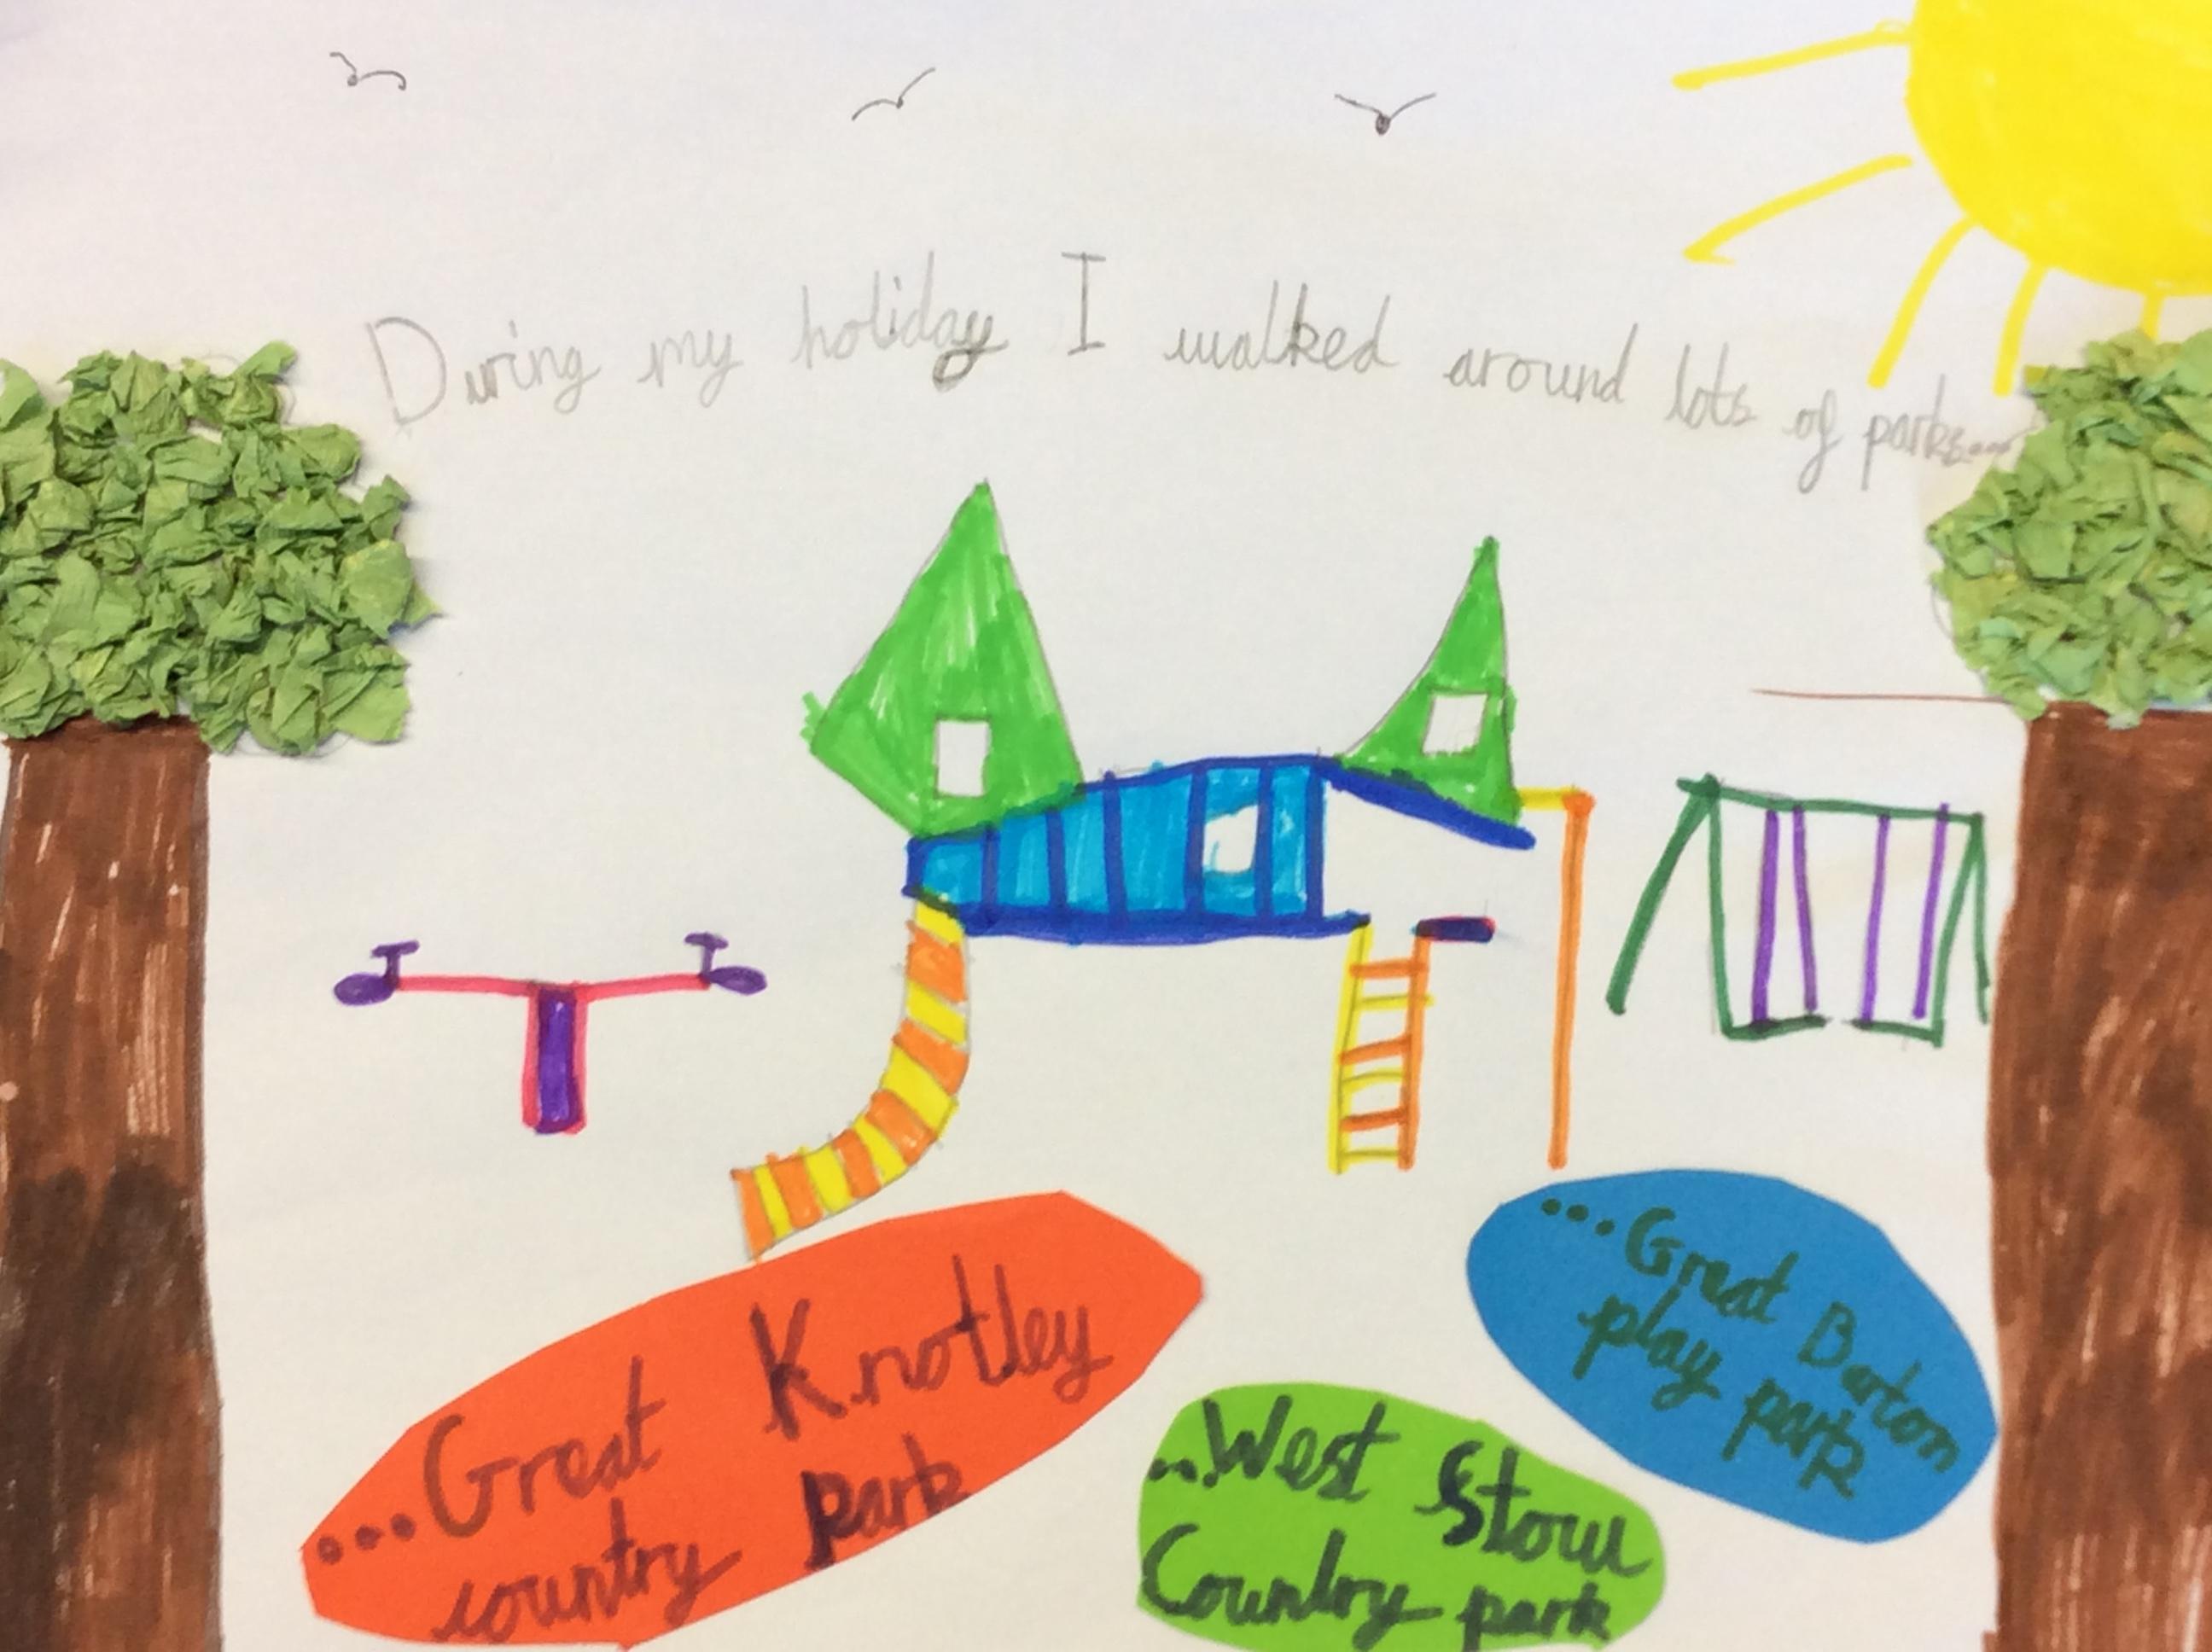 During my holiday I walked around lots of parks...
...Great Knotley
country park
...West Stow
Country park
...Great Barton
play park